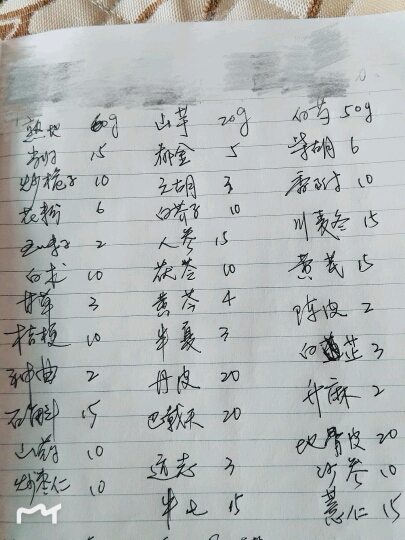 熟地 60g 山芋 20g 白芍 50g
当归 15 郁金 5 柴胡 6
炒栀子 10 元胡 3 香附 10
花粉 6 白芥子 10 川麦冬 15
2 人参 15
白术 10 茯苓 10 黄芪 15
甘草 3 黄芩 4 陈皮 2
桔梗 10 半夏 3 白芷 3
神曲 2 丹皮 20 升麻 2
石斛 15 巴戟天 20 地骨皮 20
山药 10 远志 3 沙参 10
炒枣仁 10 牛七 15 薏仁 15